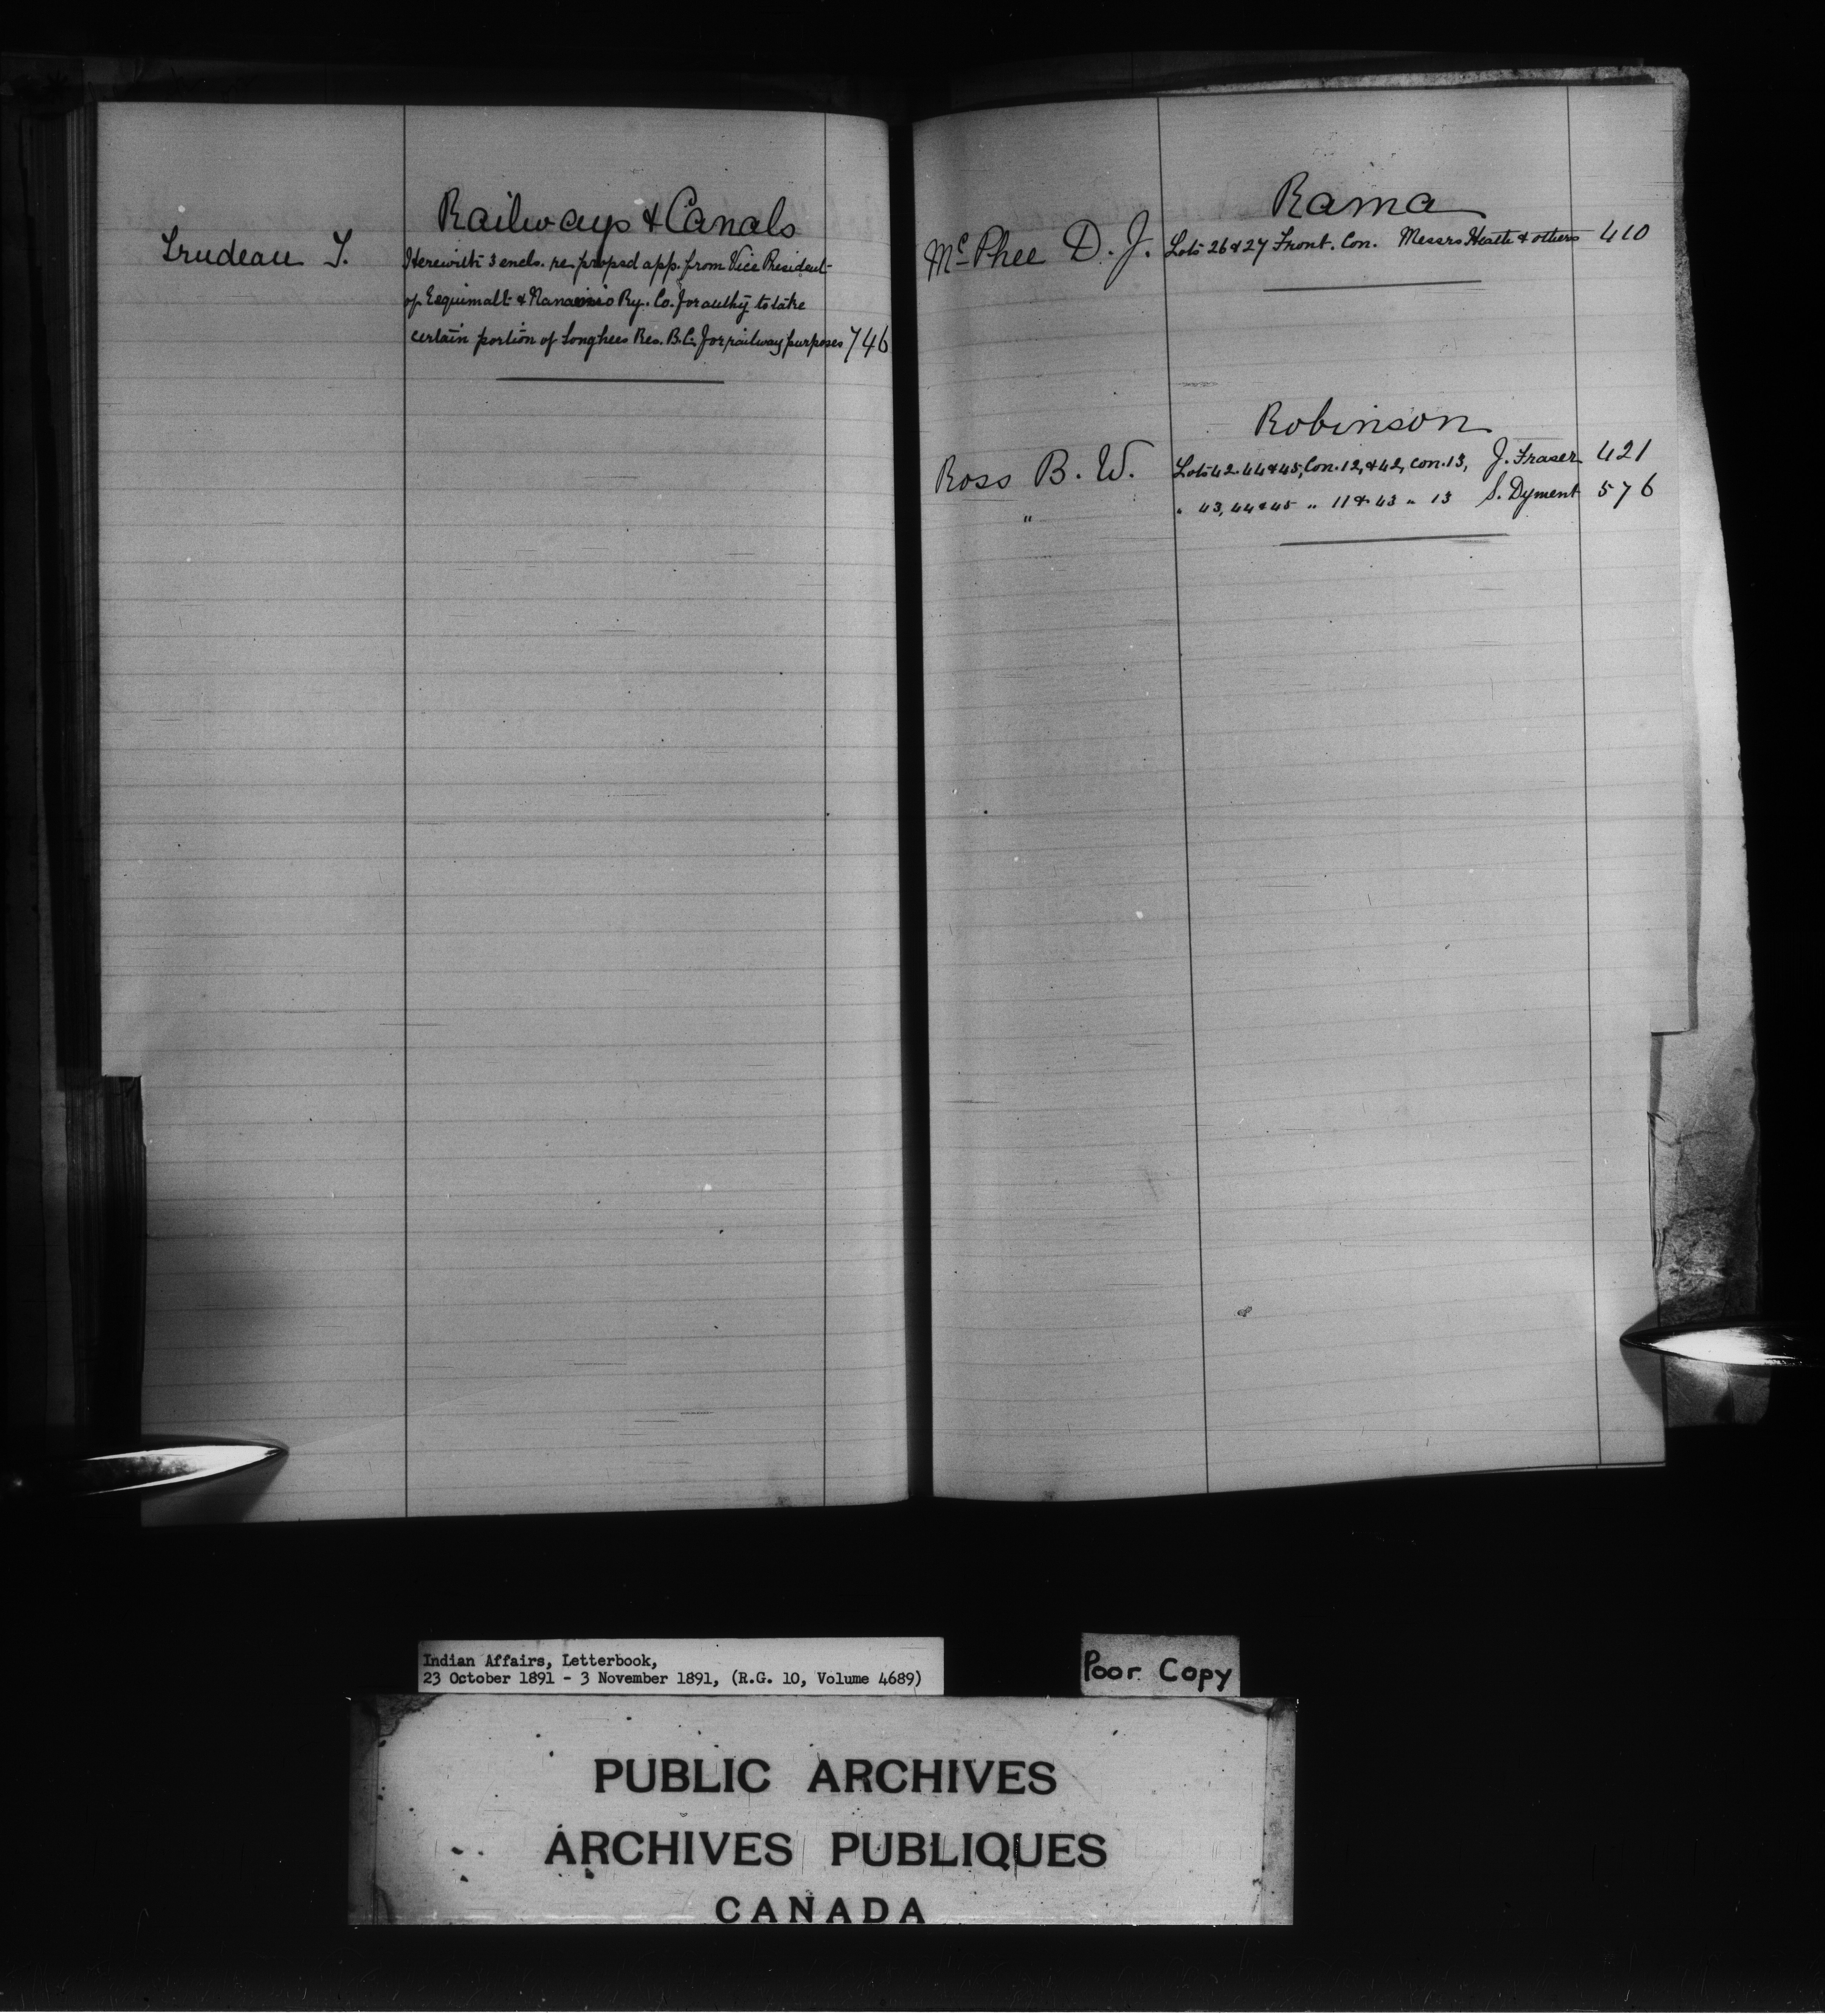 Railways & Canals
Trudeau T. Herewith 3 encls. re propsd app. from Vice President
of Esquimalt & Nanaimo Ry. Co. for authy to take
certain portion of Songhees Res. B.C. for railway purposes 746
Rama
McPhee D. J. Lots 26 & 27 Front. Con. Messrs Heath & others 410
Robinson
Ross B. W. Lots 42. 44 & 45, Con. 12, & 42, con. 13, J. Fraser 421
" " 43, 44 & 45 " 11 & 43 " 13 S. Dyment 576
Indian Affairs, Letterbook,
23 October 1891 - 3 November 1891, (R.G. 10, Volume 4689)
Poor Copy
PUBLIC ARCHIVES
ARCHIVES PUBLIQUES
CANADA